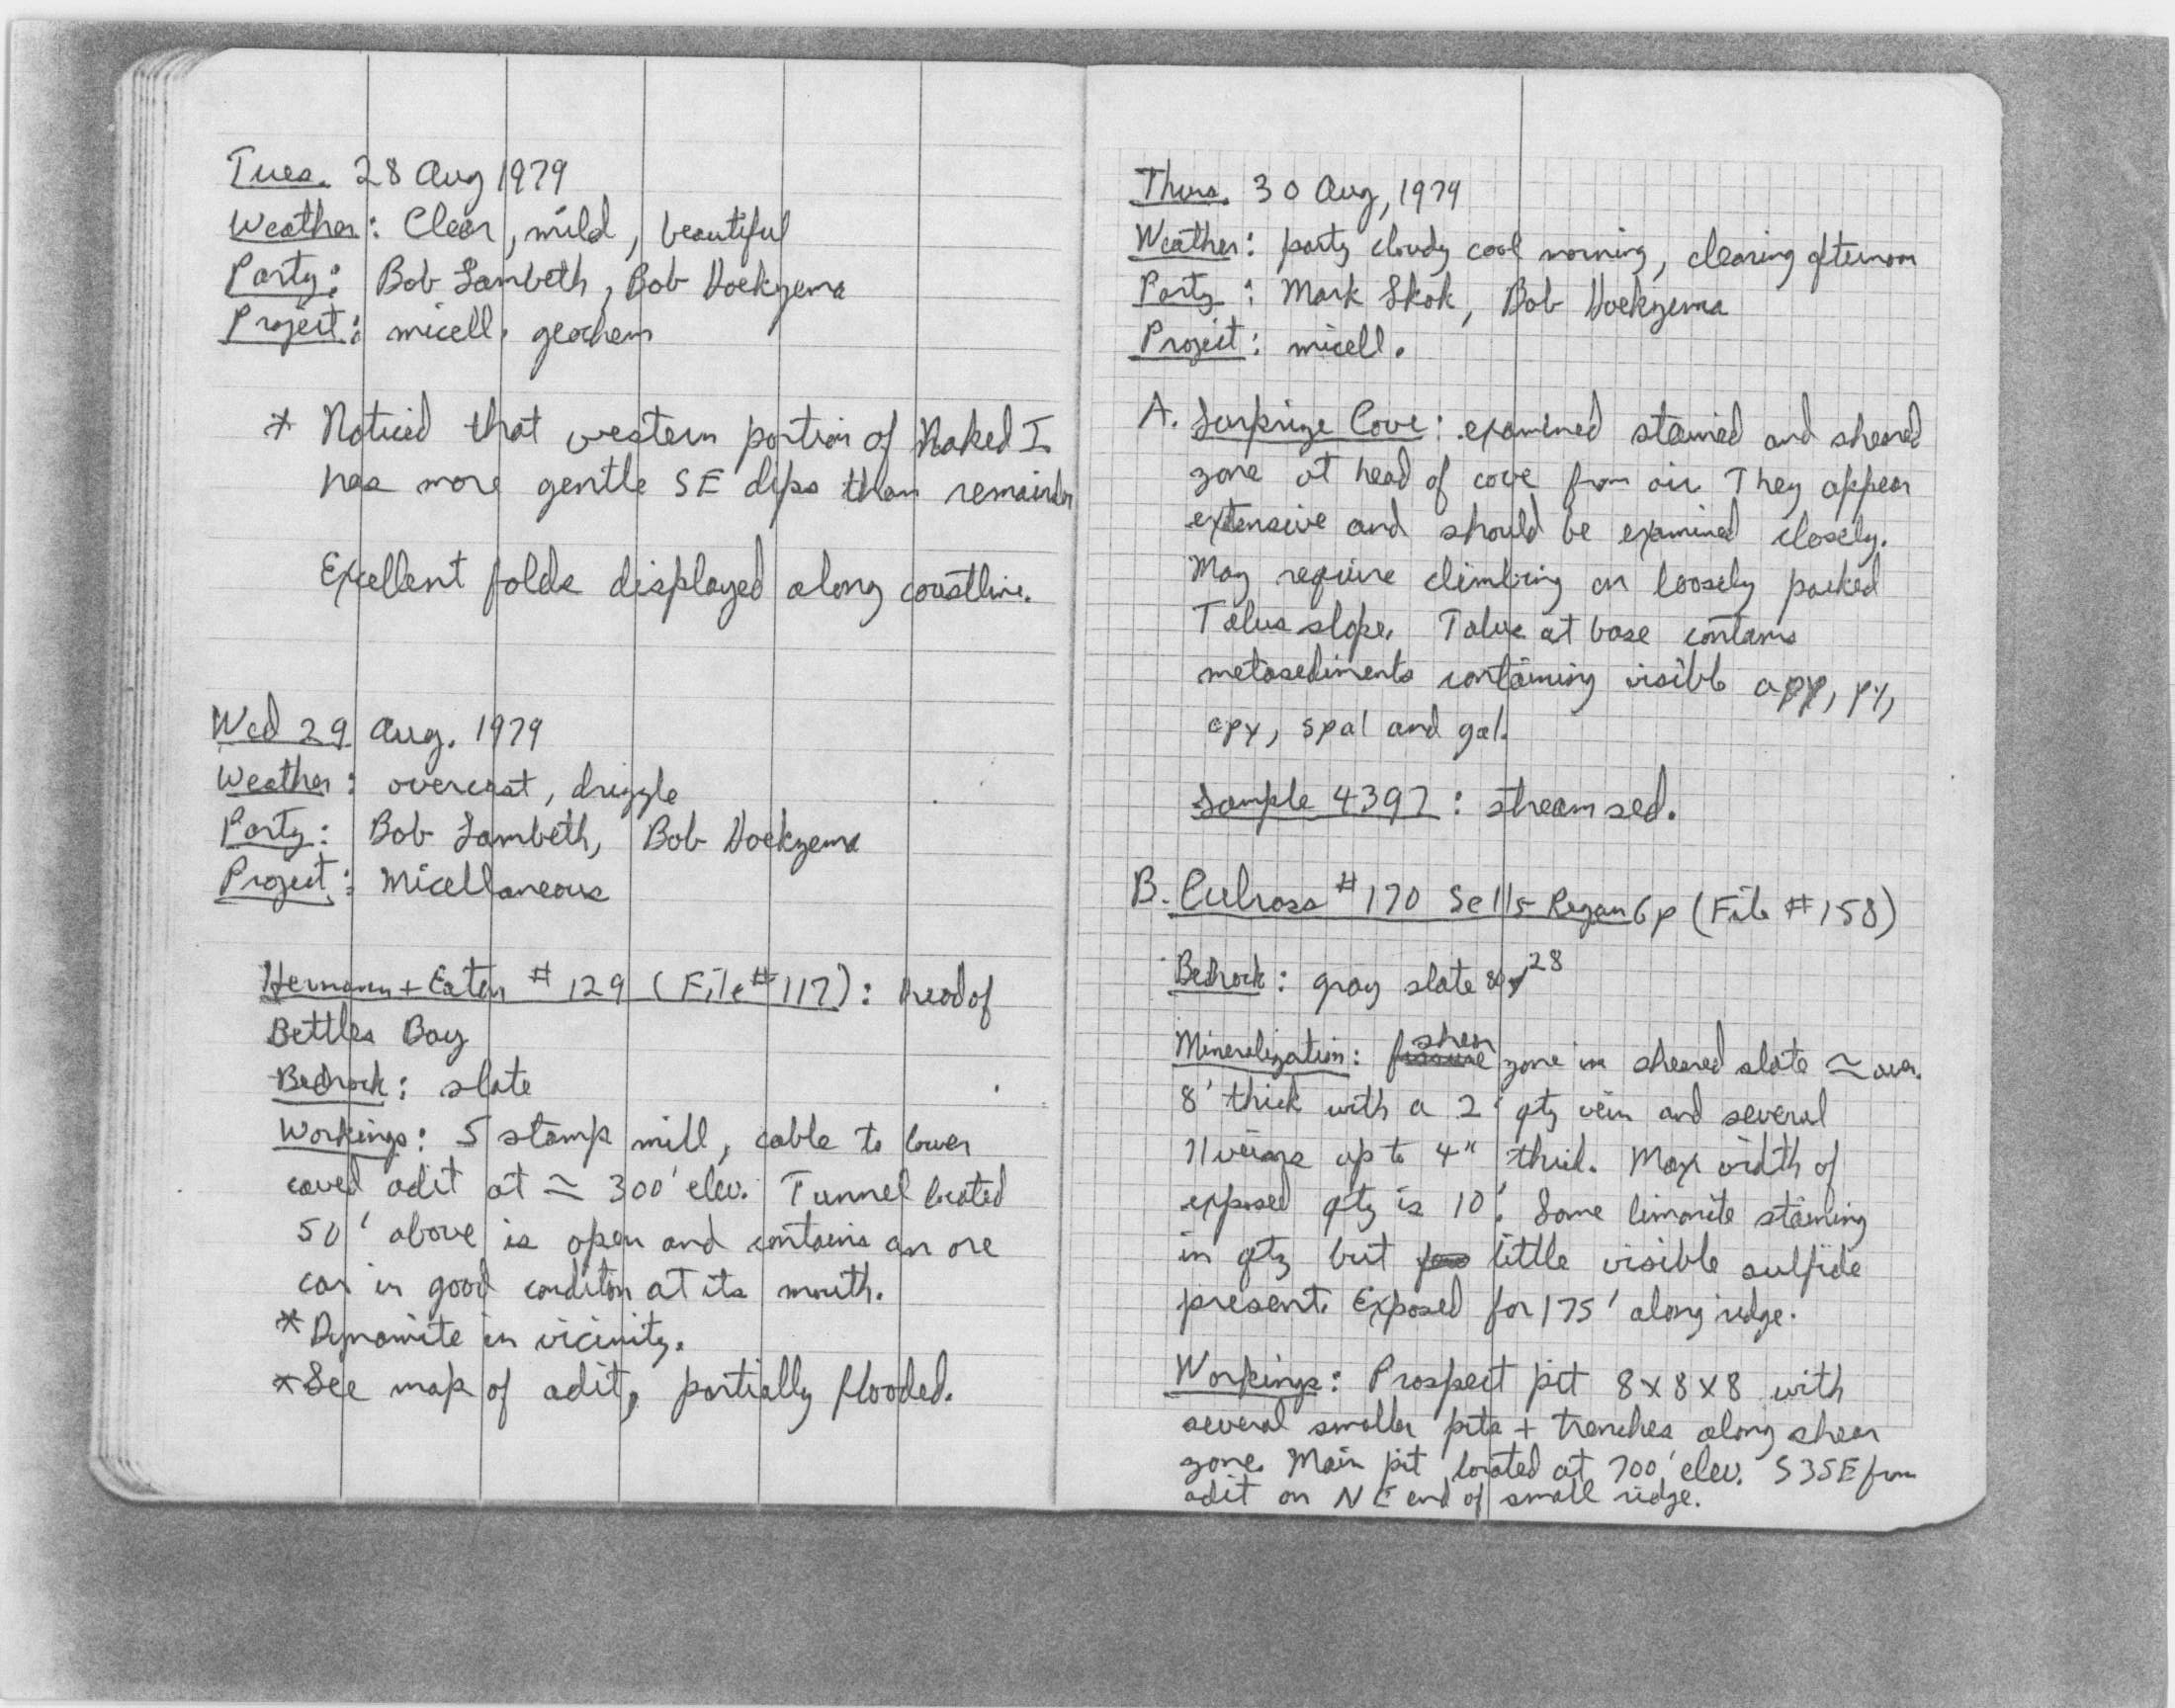 Tues. 28 Aug 1979
Weather: Clear, mild, beautiful
Party: Bob Lambeth, Bob Hoekzema
Project: micell. geochem
* Noticed that western portion of Naked I.
has more gentle SE dips than remainder
Excellent folds displayed along coastline.
Wed 29 Aug. 1979
Weather: overcast, drizzle
Party: Bob Lambeth, Bob Hoekzema
Project: Micellaneous
Hermann + Eaton # 129 (File # 117): head of
Bettles Bay
Bedrock: slate
Workings: 5 stamp mill, cable to lower
caved adit at ≃ 300' elev. Tunnel located
50' above is open and contains an ore
car in good conditon at its mouth.
* Dynamite in vicinity.
* See map of adit, partially flooded.
Thurs. 30 Aug, 1979
Weather: party cloudy cool morning, clearing afternoon
Party: Mark Skok, Bob Hoekzema
Project: micell.
A. Surprize Cove: examined stained and sheared
zone at head of cove from air. They appear
extensive and should be examined closely.
May require climbing on loosely packed
Talus slope. Talus at base contains
metasediments containing visible apy, py,
cpy, spal and gal.
Sample 4397: stream sed.
B. Culross # 170 Sells-Regan Gp (File # 158)
Bedrock: gray slate 28
Mineralization: shear zone in sheared slate ≃ aver.
8' thick with a 2' qtz vein and several
11 veins up to 4" thick. Max width of
exposed qtz is 10'. Some limonite staining
in qtz but little visible sulfide
present. Exposed for 175' along ridge.
Workings: Prospect pit 8 x 8 x 8 with
several smaller pits + trenches along shear
zone. Main pit located at 700' elev. S35E from
adit on NE end of small ridge.